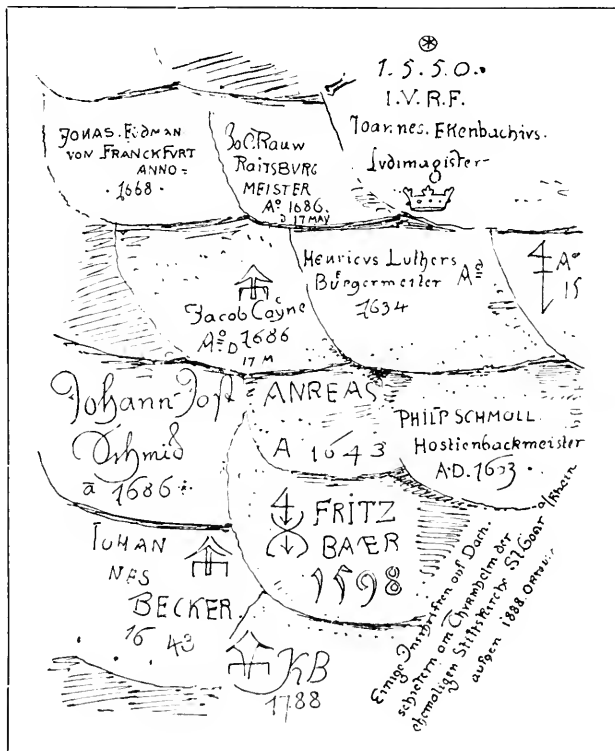 1.5.5.0.
I.V.R.F.
Joannes. Ekenbachivs.
Lvdimagister
JONAS. EIDMAN
VON FRANCKFURT
ANNO=
·1668·
Joc. Rauw
RAITSBVRG
MEISTER
Aº 1686.
D 17 MAY
Henricvs Luthers
Bürgermeister Aº
1634
Aº
15
Jacob Cayne
Aº D 1686
17 M
Johann-Jost
Schmid
a 1686
ANREAS
A 1643
PHILP SCHMOLL
Hostienbackmeister
A.D. 1603.
FRITZ
BAER
1598
IOHAN
NES
BECKER.
1643
KB
1788
Einige Inschriften auf Dach.
schiefern am Thurmhelm der
ehemaligen Stiftskirche St. Goar a/Rhein
außen 1888